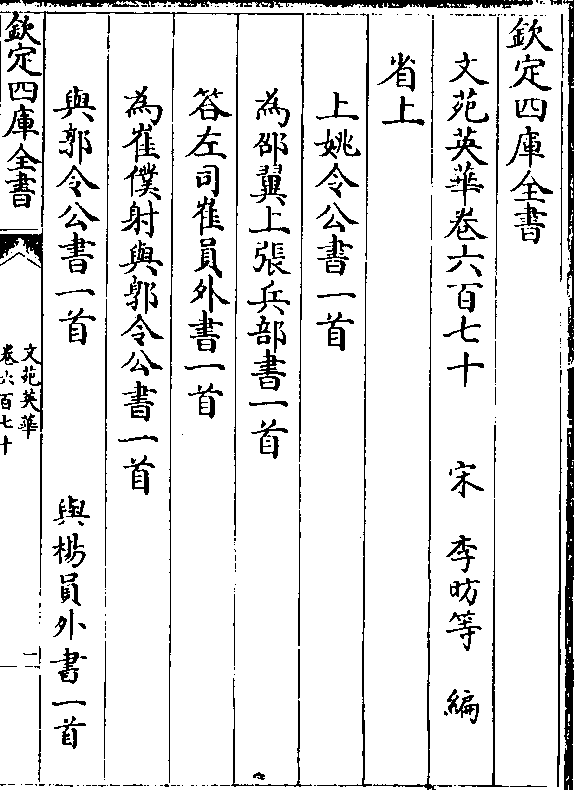 欽定四庫全書
文苑英華卷六百七十 宋 李昉等 編
省上
上姚令公書一首
為邵翼上張兵部書一首
答左司崔員外書一首
為崔僕射與郭令公書一首
與郭令公書一首 與楊員外書一首
欽定四庫全書
文苑英華
卷六百七十
一